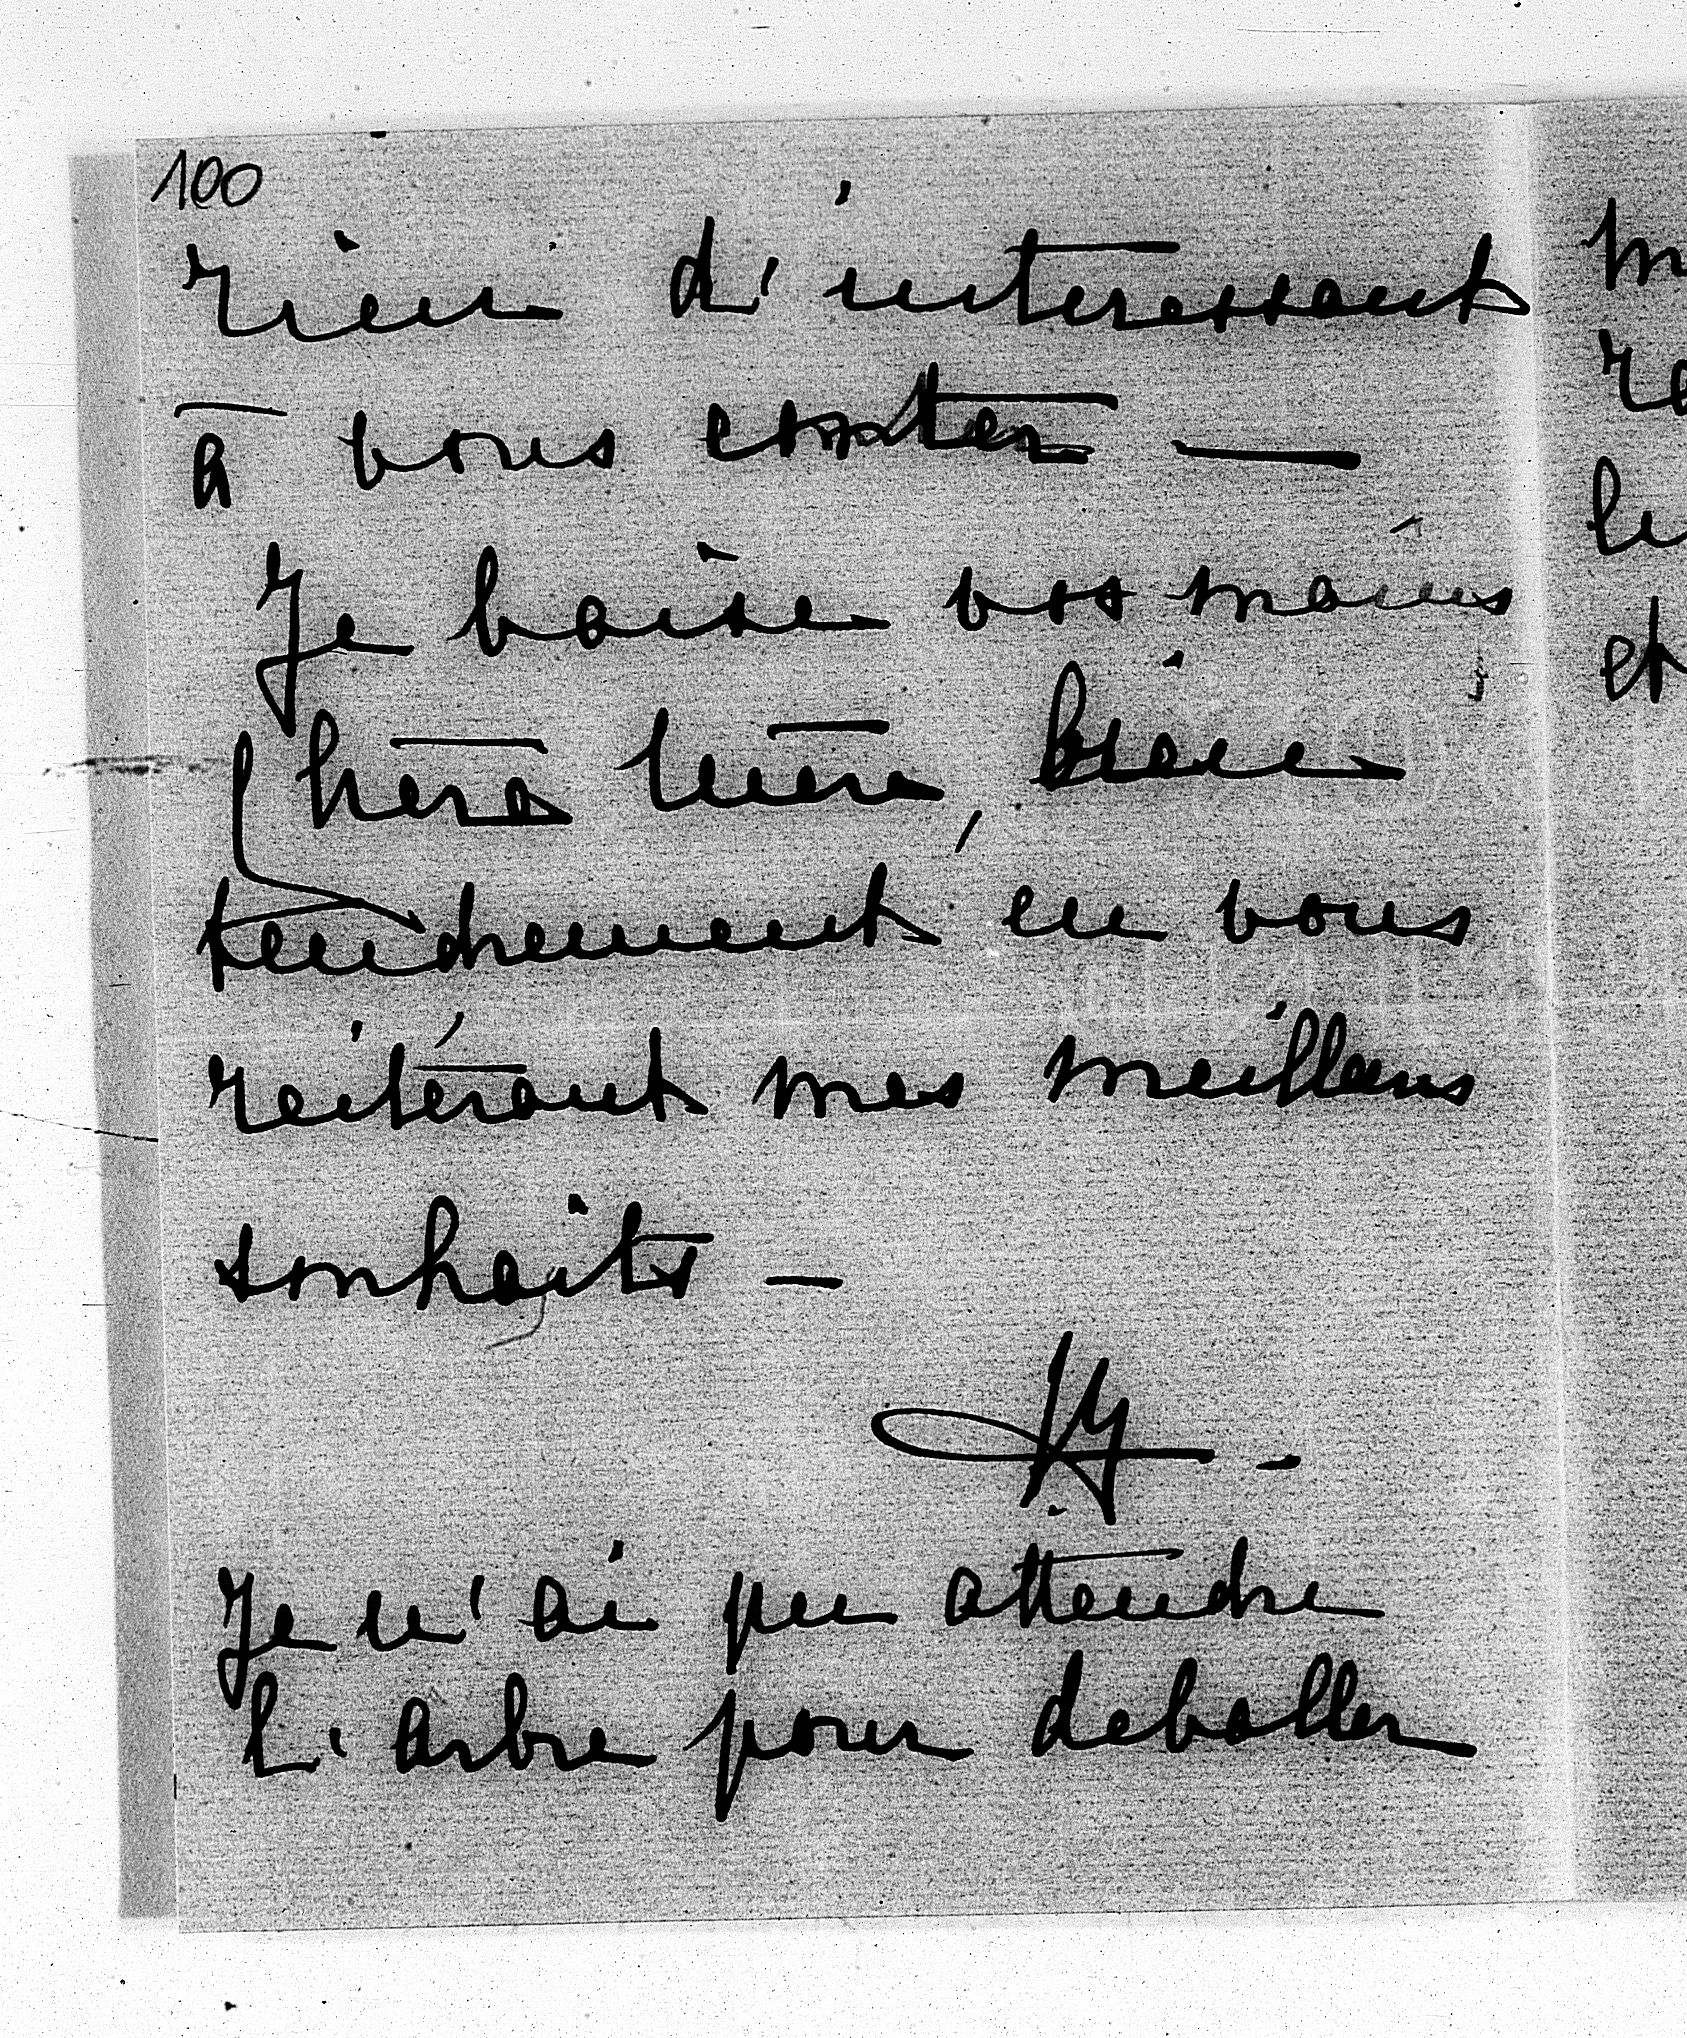 100
rien d'interessant
à vous conter —
Je baise vos mains
Chère Mère, bien
tendrement en vous
reitérant mes meilleurs
souhaits —
Je n'ai pu attendre
L'arbre pour deballer